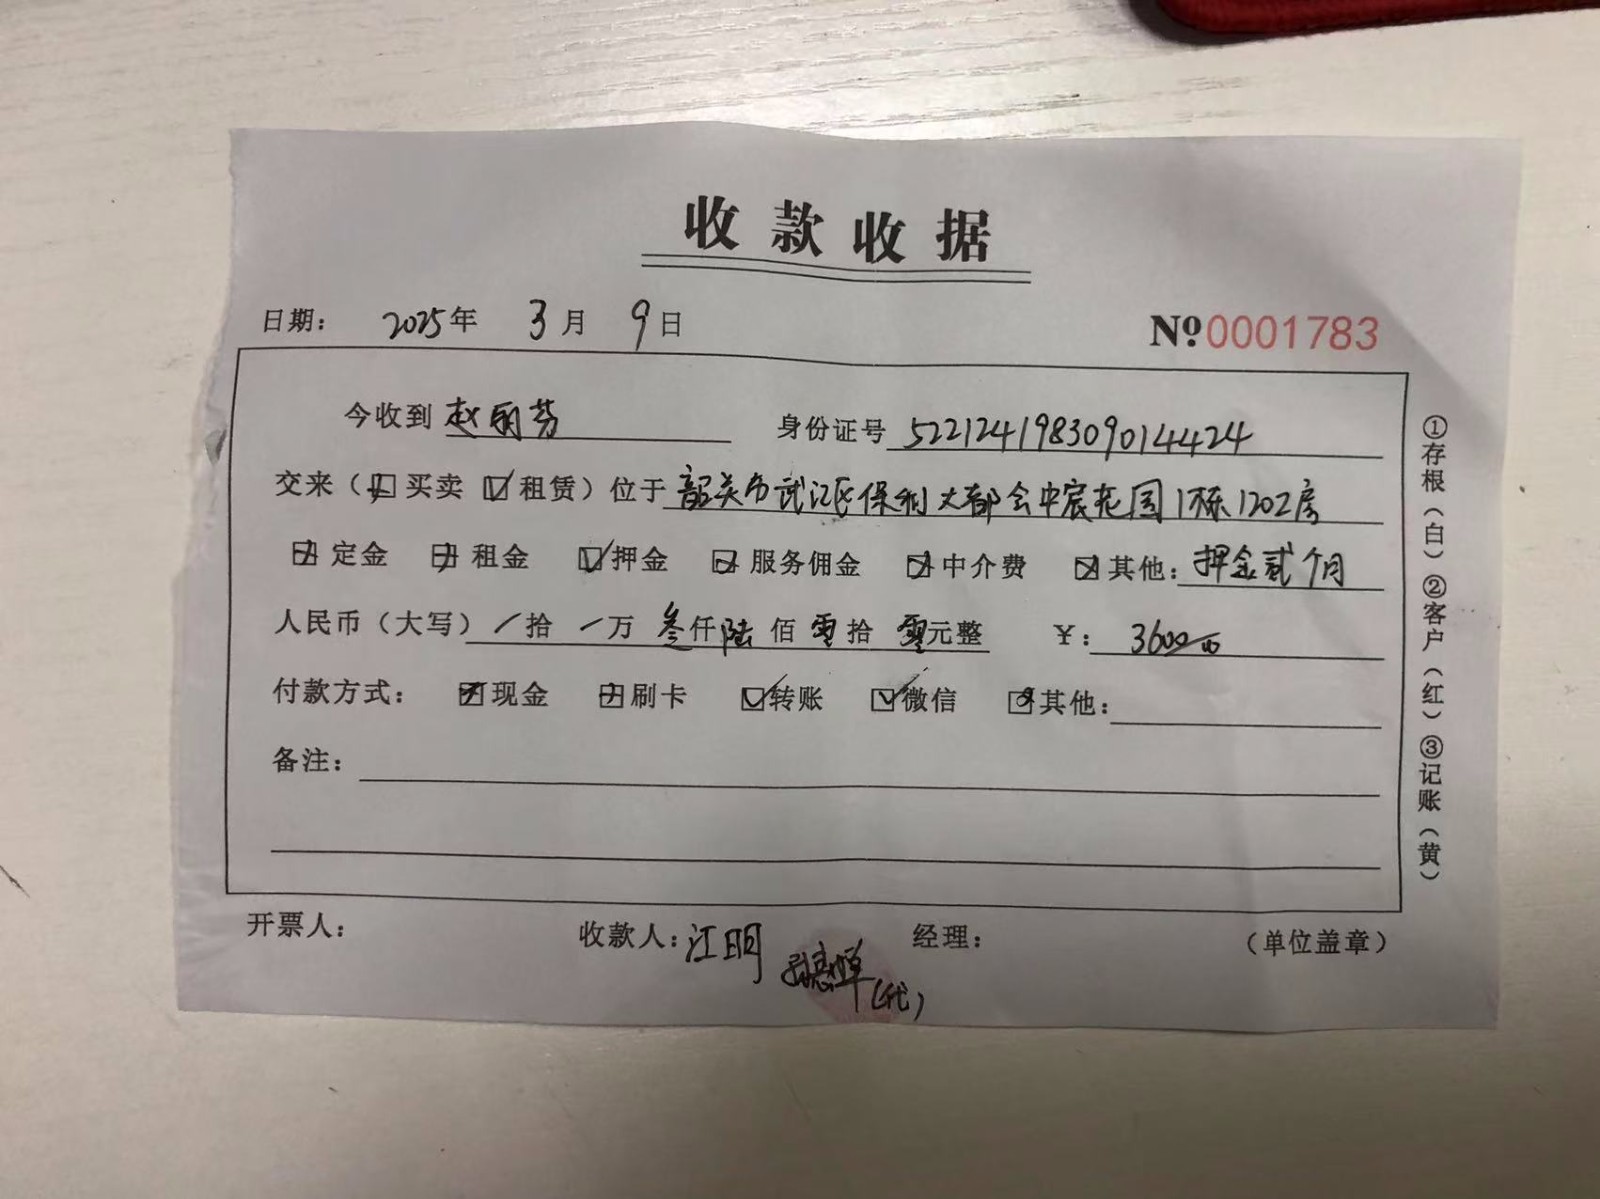 收款收据
日期： 2025年 3月 9日 №0001783
今收到 赵丽芬 身份证号 522124198309014424
交来（□买卖 ☑租赁）位于 韶关市武江区保利大都会中宸花园1栋1202房
☒定金 ☒租金 ☑押金 ☒服务佣金 ☒中介费 ☒其他：押金贰个月
人民币（大写） / 拾 / 万 叁仟陆佰零拾零元整 ￥：3600.00
付款方式： ☒现金 ☒刷卡 ☑转账 ☑微信 ☒其他：
备注：
开票人： 收款人：江明 （代） 经理： （单位盖章）
①存根（白）②客户（红）③记账（黄）